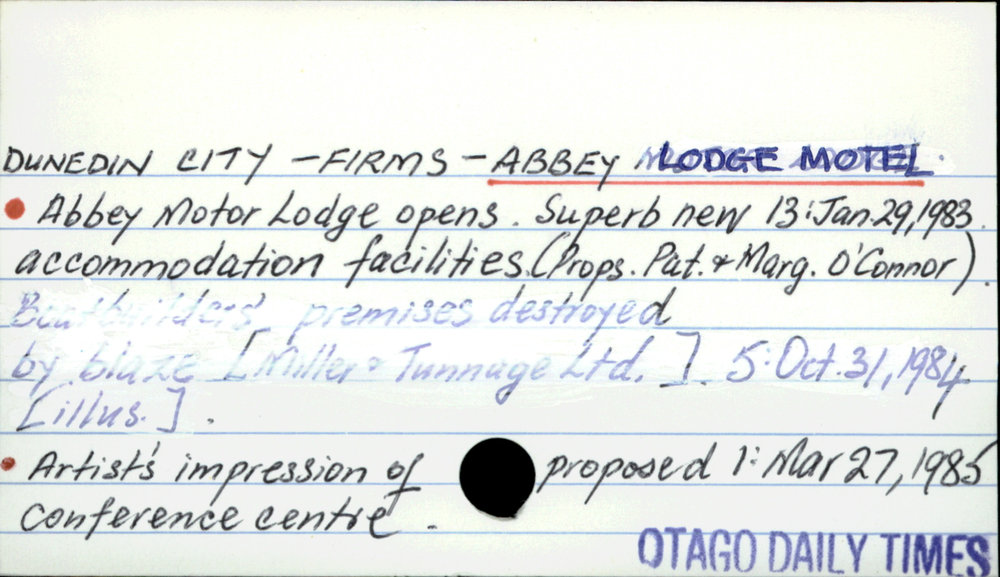 DUNEDIN CITY - FIRMS - ABBEY LODGE MOTEL.
Abbey Motor Lodge opens. Superb new 13: Jan.29,1983.
accommodation facilities. (Props. Pat. & Marg. O'Connor).
Boatbuilders' premises destroyed
by blaze [Miller & Tunnage Ltd.]. 5: Oct.31,1984
[illus.].
Artist's impression of proposed 1: Mar 27,1985
conference centre.
OTAGO DAILY TIMES